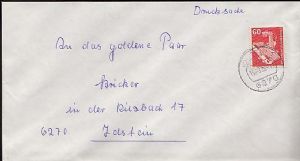 Drucksache
60
An das goldene Paar
Brücker
in der Ritzbach 17
6270 Idstein
6270